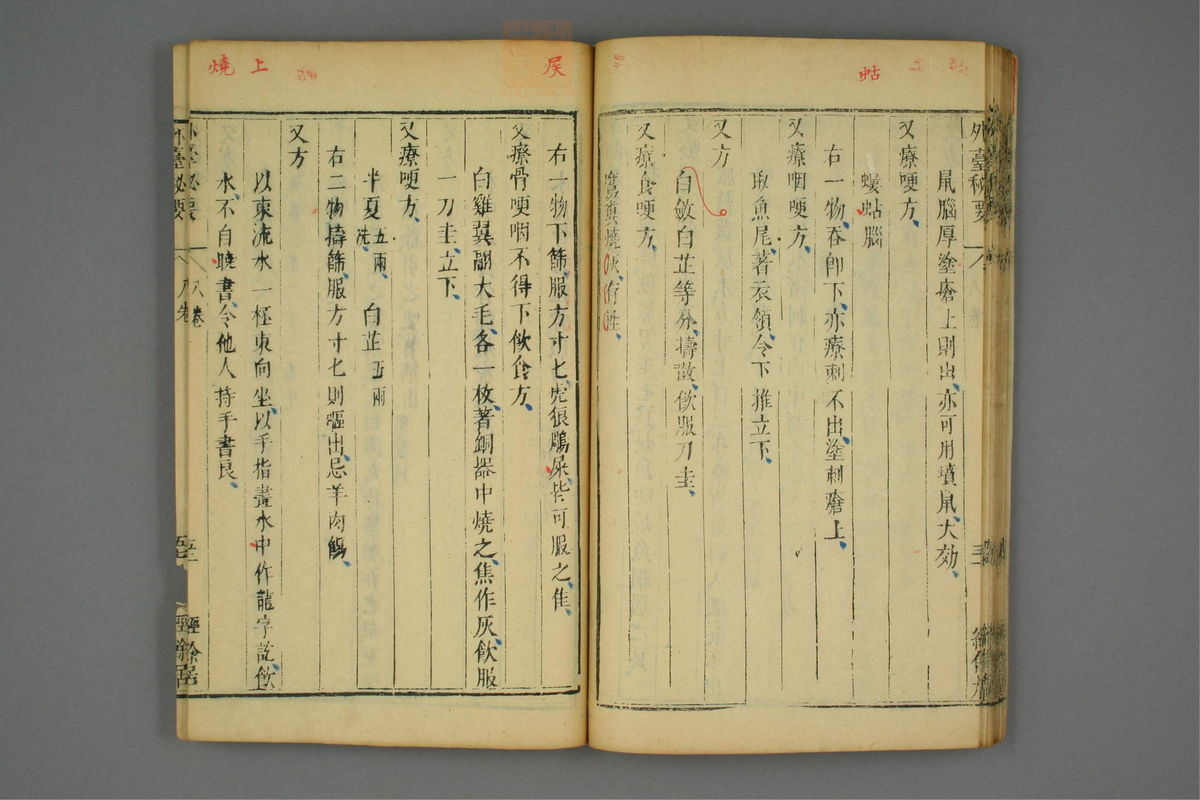 蛄
外臺秘要
鼠腦厚塗瘡上則出亦可用墳鼠大効
又療哽方
螻蛄腦
右一物吞即下亦療刺不出塗刺瘡上
又療咽哽方
取魚尾著衣領令下推立下
又方
白斂白芷等分擣散飲服刀圭
又療食哽方
鷹糞燒灰存性
屎
上
燒
右一物下篩服方寸匕虎狼鵰屎皆可服之隹
又療骨哽咽不得下飲食方
白雞翼翮大毛各一枚著銅器中燒之焦作灰飲服
一刀圭立下
又療哽方
半夏五兩洗 白芷五兩
右二物擣篩服方寸匕則嘔出忌羊肉餳
又方
以東流水一杯東向坐以手指畫水中作龍字訖飲
水不自曉書令他人持手書良
外臺秘要
八卷
經餘居